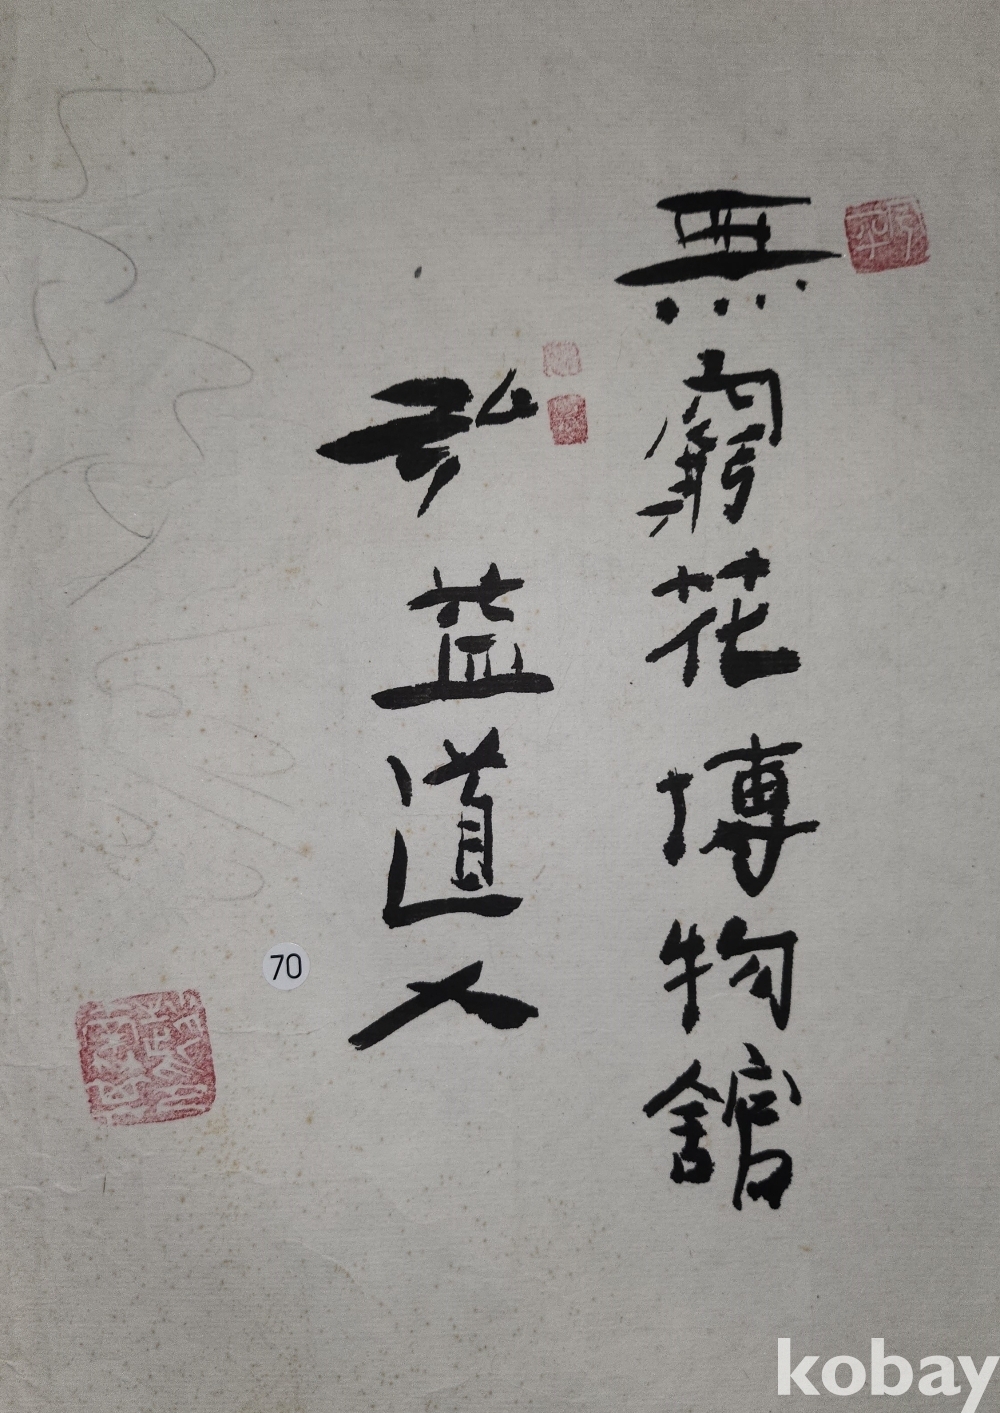 無窮花博物舘
弘益道人
70
kobay